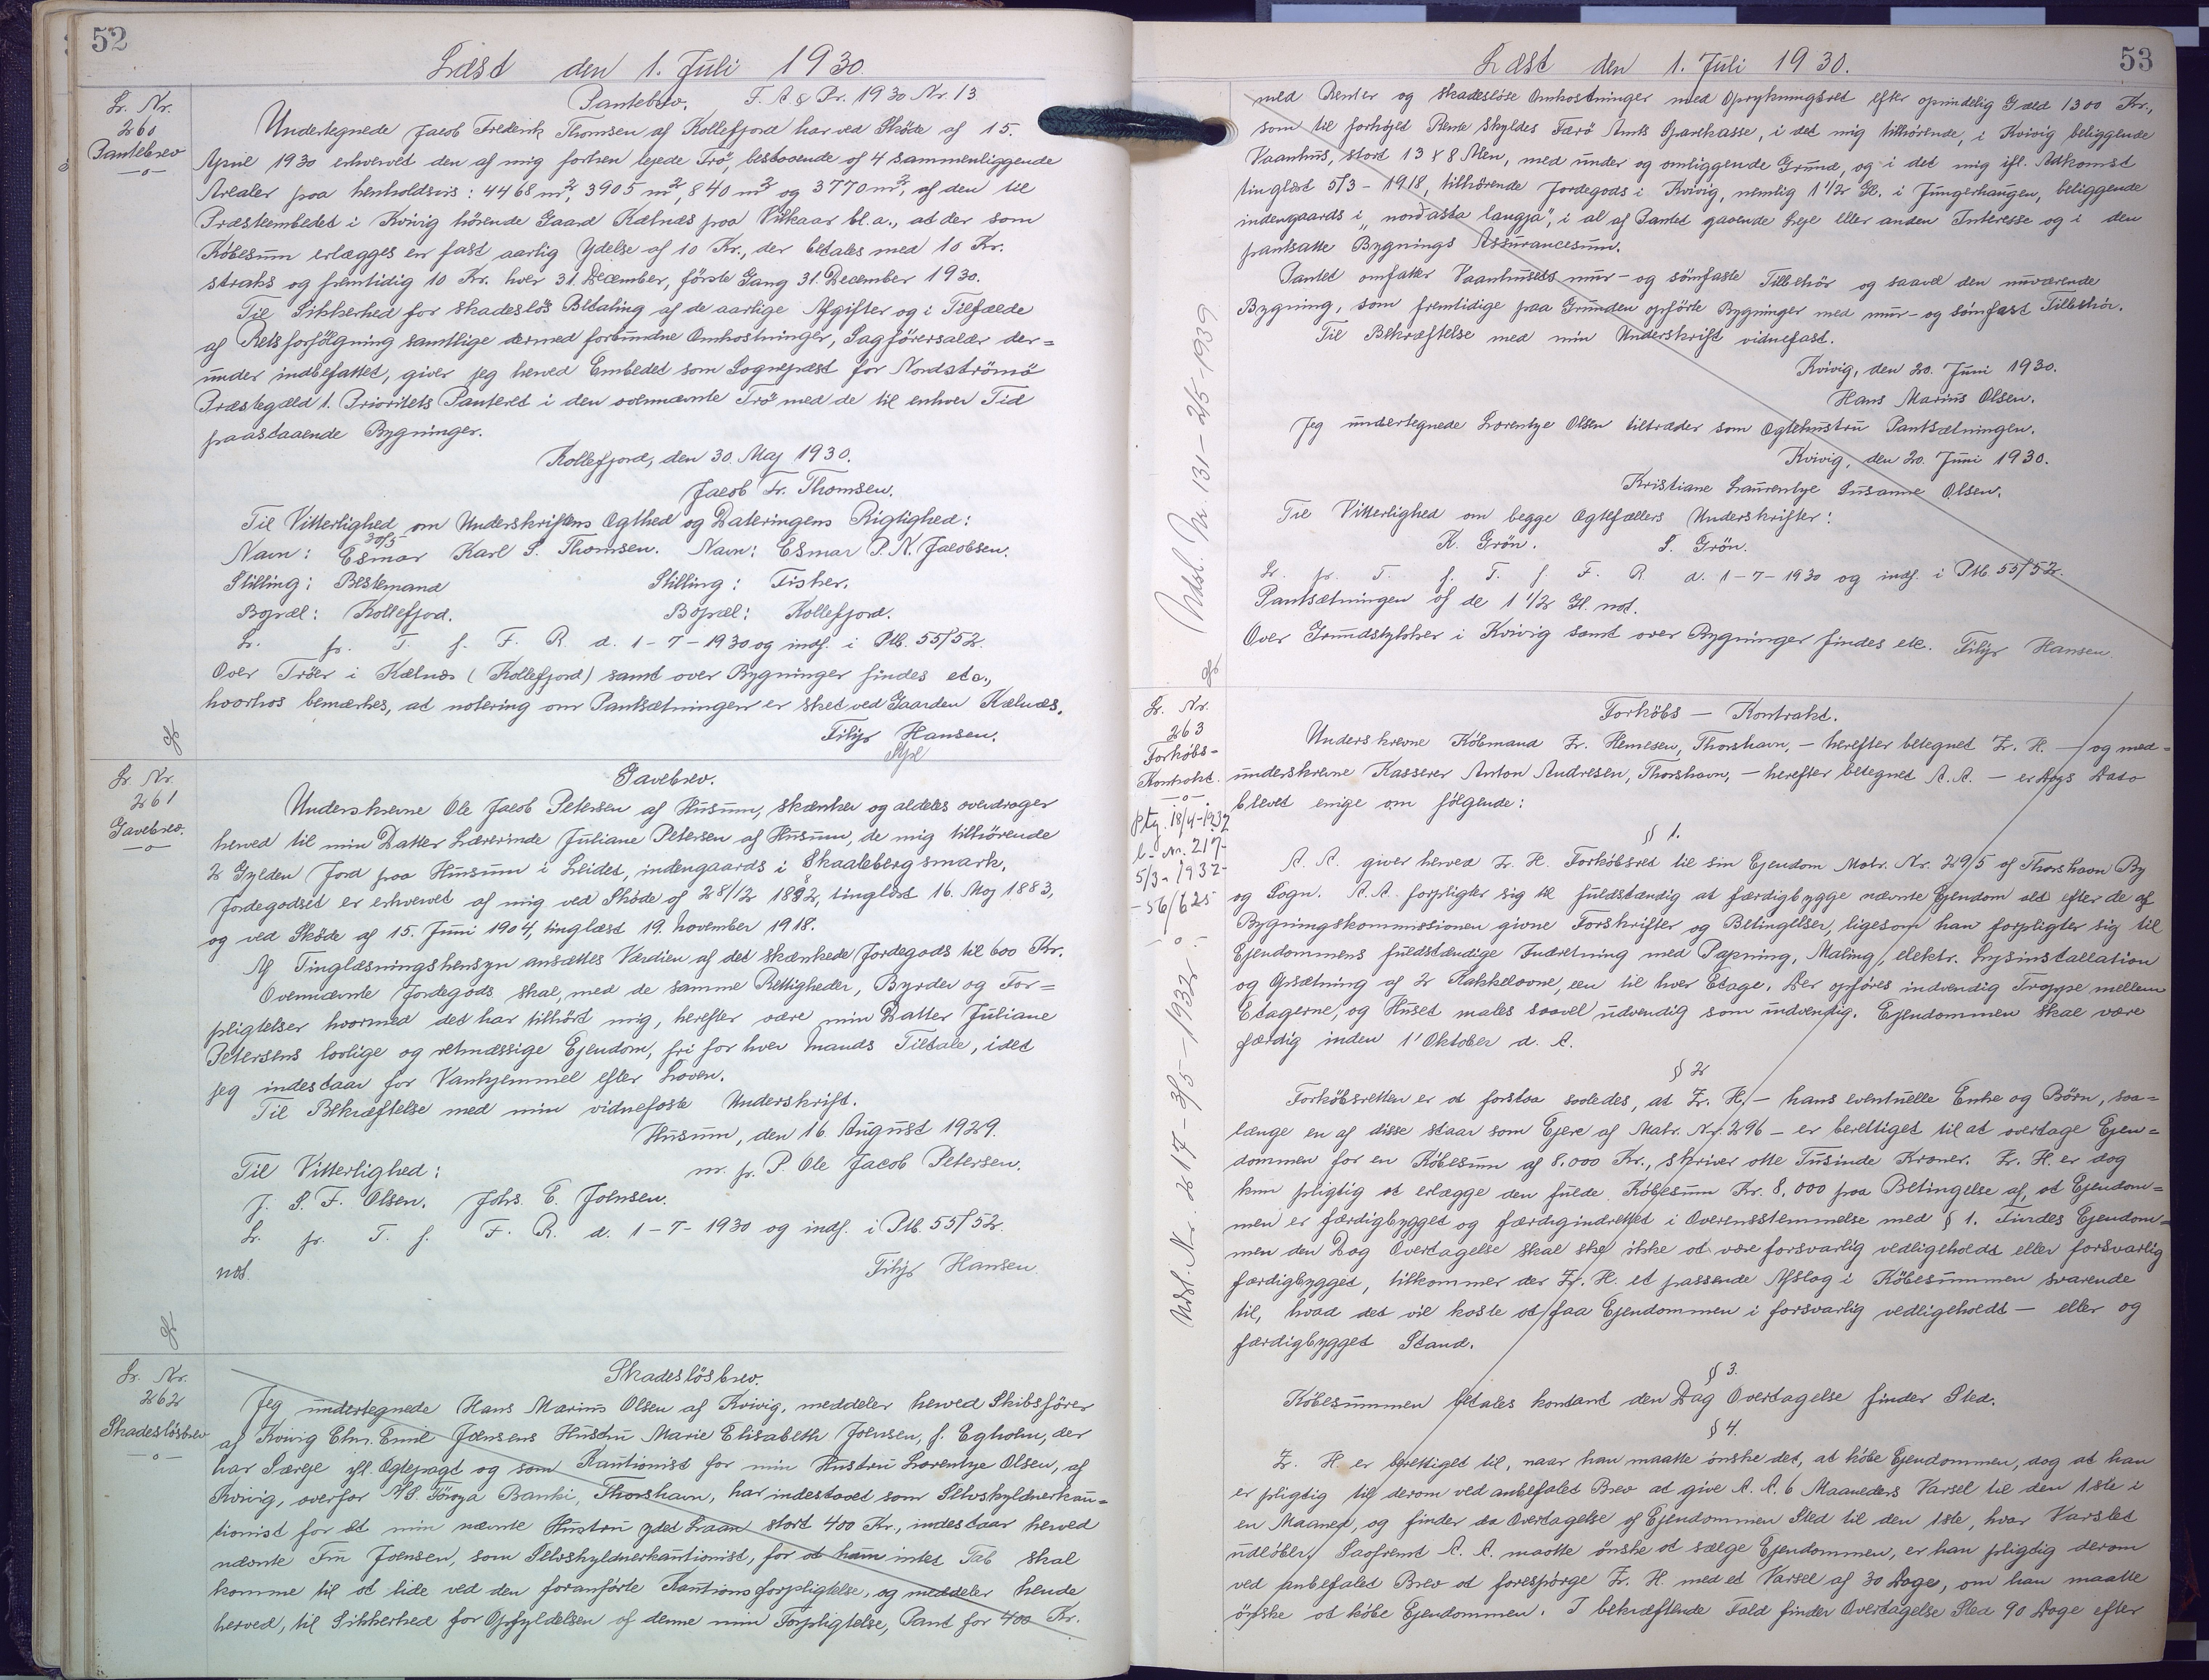 52
Læst den 1. Juli 1930
Lr. Nr.
260
Pantebrev
Pantebrev. F. A & Pr. 1930 Nr. 13
Undertegnede Jacob Frederik Thomsen af Kollefjord har ved Sköde af 15.
April 1930 erhvervet den af mig forhen lejede Trö, bestaaende af 4 sammenliggende
Arealer paa henholdsvis: 4468 m², 3905 m², 840 m² og 3770 m², af den til
Præsteembedet i Kvivig hörende Gaard Kælnæs paa Vilkaar bl. a., at der som
Köbesum erlægges en fast aarlig Ydelse af 10 Kr., der betales med 10 Kr.
straks og fremtidig 10 Kr. hver 31. December, förste Gang 31. December 1930.
Til Sikkerhed for skadeslös Betaling af de aarlige Afgifter og i Tilfælde
af Retsforfölgning samtlige dermed forbundne Omkostninger, Sagförersalær der=
under indbefattet, giver jeg herved Embedet som Sognepræst for Nordströmö
Præstegæld 1. Prioritets Panteret i den ovennævnte Trö med de til enhver Tid
paastaaende Bygninger.
Kollefjord, den 30. Maj 1930.
Jacob Fr. Thomsen.
Til Vitterlighed om Underskriftens Ægthed og Dateringens Rigtighed:
30/5
Navn: Esmar Karl S. Thomsen. Navn: Esmar P. N. Jacobsen.
Stilling: Bestemand Stilling: Fisker.
Bopæl: Kollefjord. Bopæl: Kollefjord.
Lr. fr. T. f. F. R. d. 1-7-1930 og indf. i Ptb. 55/52.
Over Tröer i Kælnæs (Kollefjord) samt over Bygninger findes etc.,
hvorhos bemærkes, at notering om Pantsætningen er sket ved Gaarden Kælnæs.
Filip Hansen.
Lr. Nr.
261
Gavebrev.
Gavebrev.
Underskrevne Ole Jacob Petersen af Husum, skænker og aldeles overdrager
herved til min Datter Lærerinde Juliane Petersen af Husum, de mig tilhörende
2 Gylden Jord paa Husum i Leidet, indengaards i Skaalebergsmark.
Jordegodset er erhvervet af mig ved Sköde af 28/12 1882, tinglæst 16. Maj 1883,
og ved Sköde af 15. Juni 1904, tinglæst 19. November 1918.
Af Tinglæsningshensyn ansættes Værdien af det skænkede Jordegods til 600 Kr.
Ovennævnte Jordegods skal, med de samme Rettigheder, Byrder og For=
pligtelser hvormed det har tilhört mig, herefter være min Datter Juliane
Petersens lovlige og retmæssige Ejendom, fri for hver Mands Tiltale, idet
jeg indestaar for Vanhjemmel efter Loven.
Til Bekræftelse med min vidnefaste Underskrift.
Husum, den 16. August 1929.
Til Vitterlighed: m. p. P. Ole Jacob Petersen.
J. S. F. Olsen. Johs. E. Joensen.
Lr. fr. T. f. F. R. d. 1-7-1930 og indf. i Ptb. 55/52.
not. Filip Hansen
Lr. Nr.
262
Skadeslösbrev
Skadeslösbrev.
Jeg undertegnede Hans Marius Olsen af Kvivig, meddeler herved Skibsförer
af Kvivig Chr. Emil Joensens Hustru Marie Elisabeth Joensen, f. Egholm, der
har Særeje ifl. Ægtepagt og som Kautionist for min Hustru Lorentze Olsen, af
Kvivig, overfor A/S. Föroya Banki, Thorshavn, har indestaaet som Selvskyldnerkau=
tionist for et min nævnte Hustru ydet Laan stort 400 Kr., indestaar herved
nævnte Fru Joensen, som Selvskyldnerkautionist, for at ham intet Tab skal
komme til at lide ved den foranförte Kautionsforpligtelse, og meddeler hende
herved, til Sikkerhed for Opfyldelsen af denne min Forpligtelse, Pant for 400 Kr.
53
Læst den 1. Juli 1930.
med Renter og skadeslöse Omkostninger med Oprykningsret efter oprindelig Gæld 1300 Kr.,
som til forhöjet Rente skyldes Færö Amts Sparekasse, i det mig tilhörende, i Kvivig beliggende
Vaanhus, stort 13 x 8 Alen, med under og omliggende Grund, og i det mig ifl. Adkomst
tinglæst 5/3 - 1918, tilhörende Jordegods i Kvivig, nemlig 1 1/2 Gl. i Jungerhaugen, beliggende
indengaards i "nordasta langja", i al af Pantet gaaende Leje eller anden Interesse og i den
pantsatte Bygnings Assurancesum.
Pantet omfatter Vaanhusets mur- og sömfaste Tilbehör og saavel den nuværende
Bygning, som fremtidige paa Grunden opförte Bygninger med mur- og sömfast Tilbehör.
Til Bekræftelse med min Underskrift vidnefast.
Kvivig, den 20. Juni 1930.
Hans Marius Olsen.
Jeg undertegnede Lorentze Olsen tiltræder som Ægtehustru Pantsætningen.
Kvivig, den 20. Juni 1930.
Kristiane Laurentze Susanne Olsen.
Til Vitterlighed om begge Ægtefællers Underskrifter:
K. Grön. S. Grön.
Lr. fr. T. f. T. f. F. R. d. 1-7-1930 og indf. i Ptb. 55/52.
Pantsætningen af de 1 1/2 Gl. not.
Over Grundstykker i Kvivig samt over Bygninger findes etc. Filip Hansen.
Udsl. Nr. 131 - 2/5-1939
Lr. Nr.
263
Forköbs-
Kontrakt.
ptg. 18/4-1932
l. nr. 217-
5/3-1932-
-56/625
Udsl. Nr. 217 - 3/5-1932
Forköbs - Kontrakt.
Underskrevne Köbmand Z. Hemesen, Thorshavn, - herefter betegnet Z. H. - og med=
underskrevne Kasserer Anton Andresen, Thorshavn, - herefter betegnet A. A. - er Dags Dato
blevet enige om fölgende:
§ 1.
A. A. giver herved Z. H. Forköbsret til sin Ejendom Matr. Nr. 295 af Thorshavn By
og Sogn. A. A. forpligter sig til fuldstændig at færdigbygge nævnte Ejendom alt efter de af
Bygningskommissionen givne Forskrifter og Betingelser, ligesom han forpligter sig til
Ejendommens fuldstændige Indretning med Papning, Maling, elektr. Lysinstallation
og Opsætning af 2 Kakkelovne, een til hver Etage. Der opföres indvendig Trappe mellem
Etagerne, og Huset males saavel udvendig som indvendig. Ejendommen skal være
færdig inden 1' Oktober d. A.
§ 2
Forköbsretten er at forstaa saaledes, at Z. H. - hans eventuelle Enke og Börn, saa=
længe en af disse staar som Ejere af Matr. Nr. 296 - er berettiget til at overtage Ejen=
dommen for en Köbesum af 8.000 Kr., skriver otte Tusinde Kroner. Z. H. er dog
kun pligtig at erlægge den fulde Köbesum Kr. 8.000 paa Betingelse af, at Ejendom=
men er færdigbygget og færdigindrettet i Overensstemmelse med § 1. Findes Ejendom=
men den Dag Overtagelse skal ske ikke at være forsvarlig vedligeholdt eller forsvarlig
færdigbygget, tilkommer der Z. H. et passende Afslag i Köbesummen svarende
til, hvad det vil koste at faa Ejendommen i forsvarlig vedligeholdt - eller og
færdigbygget Stand.
§ 3.
Köbesummen betales kontant den Dag Overtagelse finder Sted.
§ 4.
Z. H er berettiget til, naar han maatte önske det, at köbe Ejendommen, dog at han
er pligtig til derom ved anbefalet Brev at give A. A. 6 Maaneders Varsel til den 1ste i
en Maaned, og finder da Overtagelse af Ejendommen Sted til den 1ste, hvor Varslet
udlöber. Saafremt A. A. maatte önske at sælge Ejendommen, er han pligtig derom
ved anbefalet Brev at forespörge Z. H. med et Varsel af 30 Dage, om han maatte
önske at köbe Ejendommen. I bekræftende Fald finder Overtagelse Sted 90 Dage efter